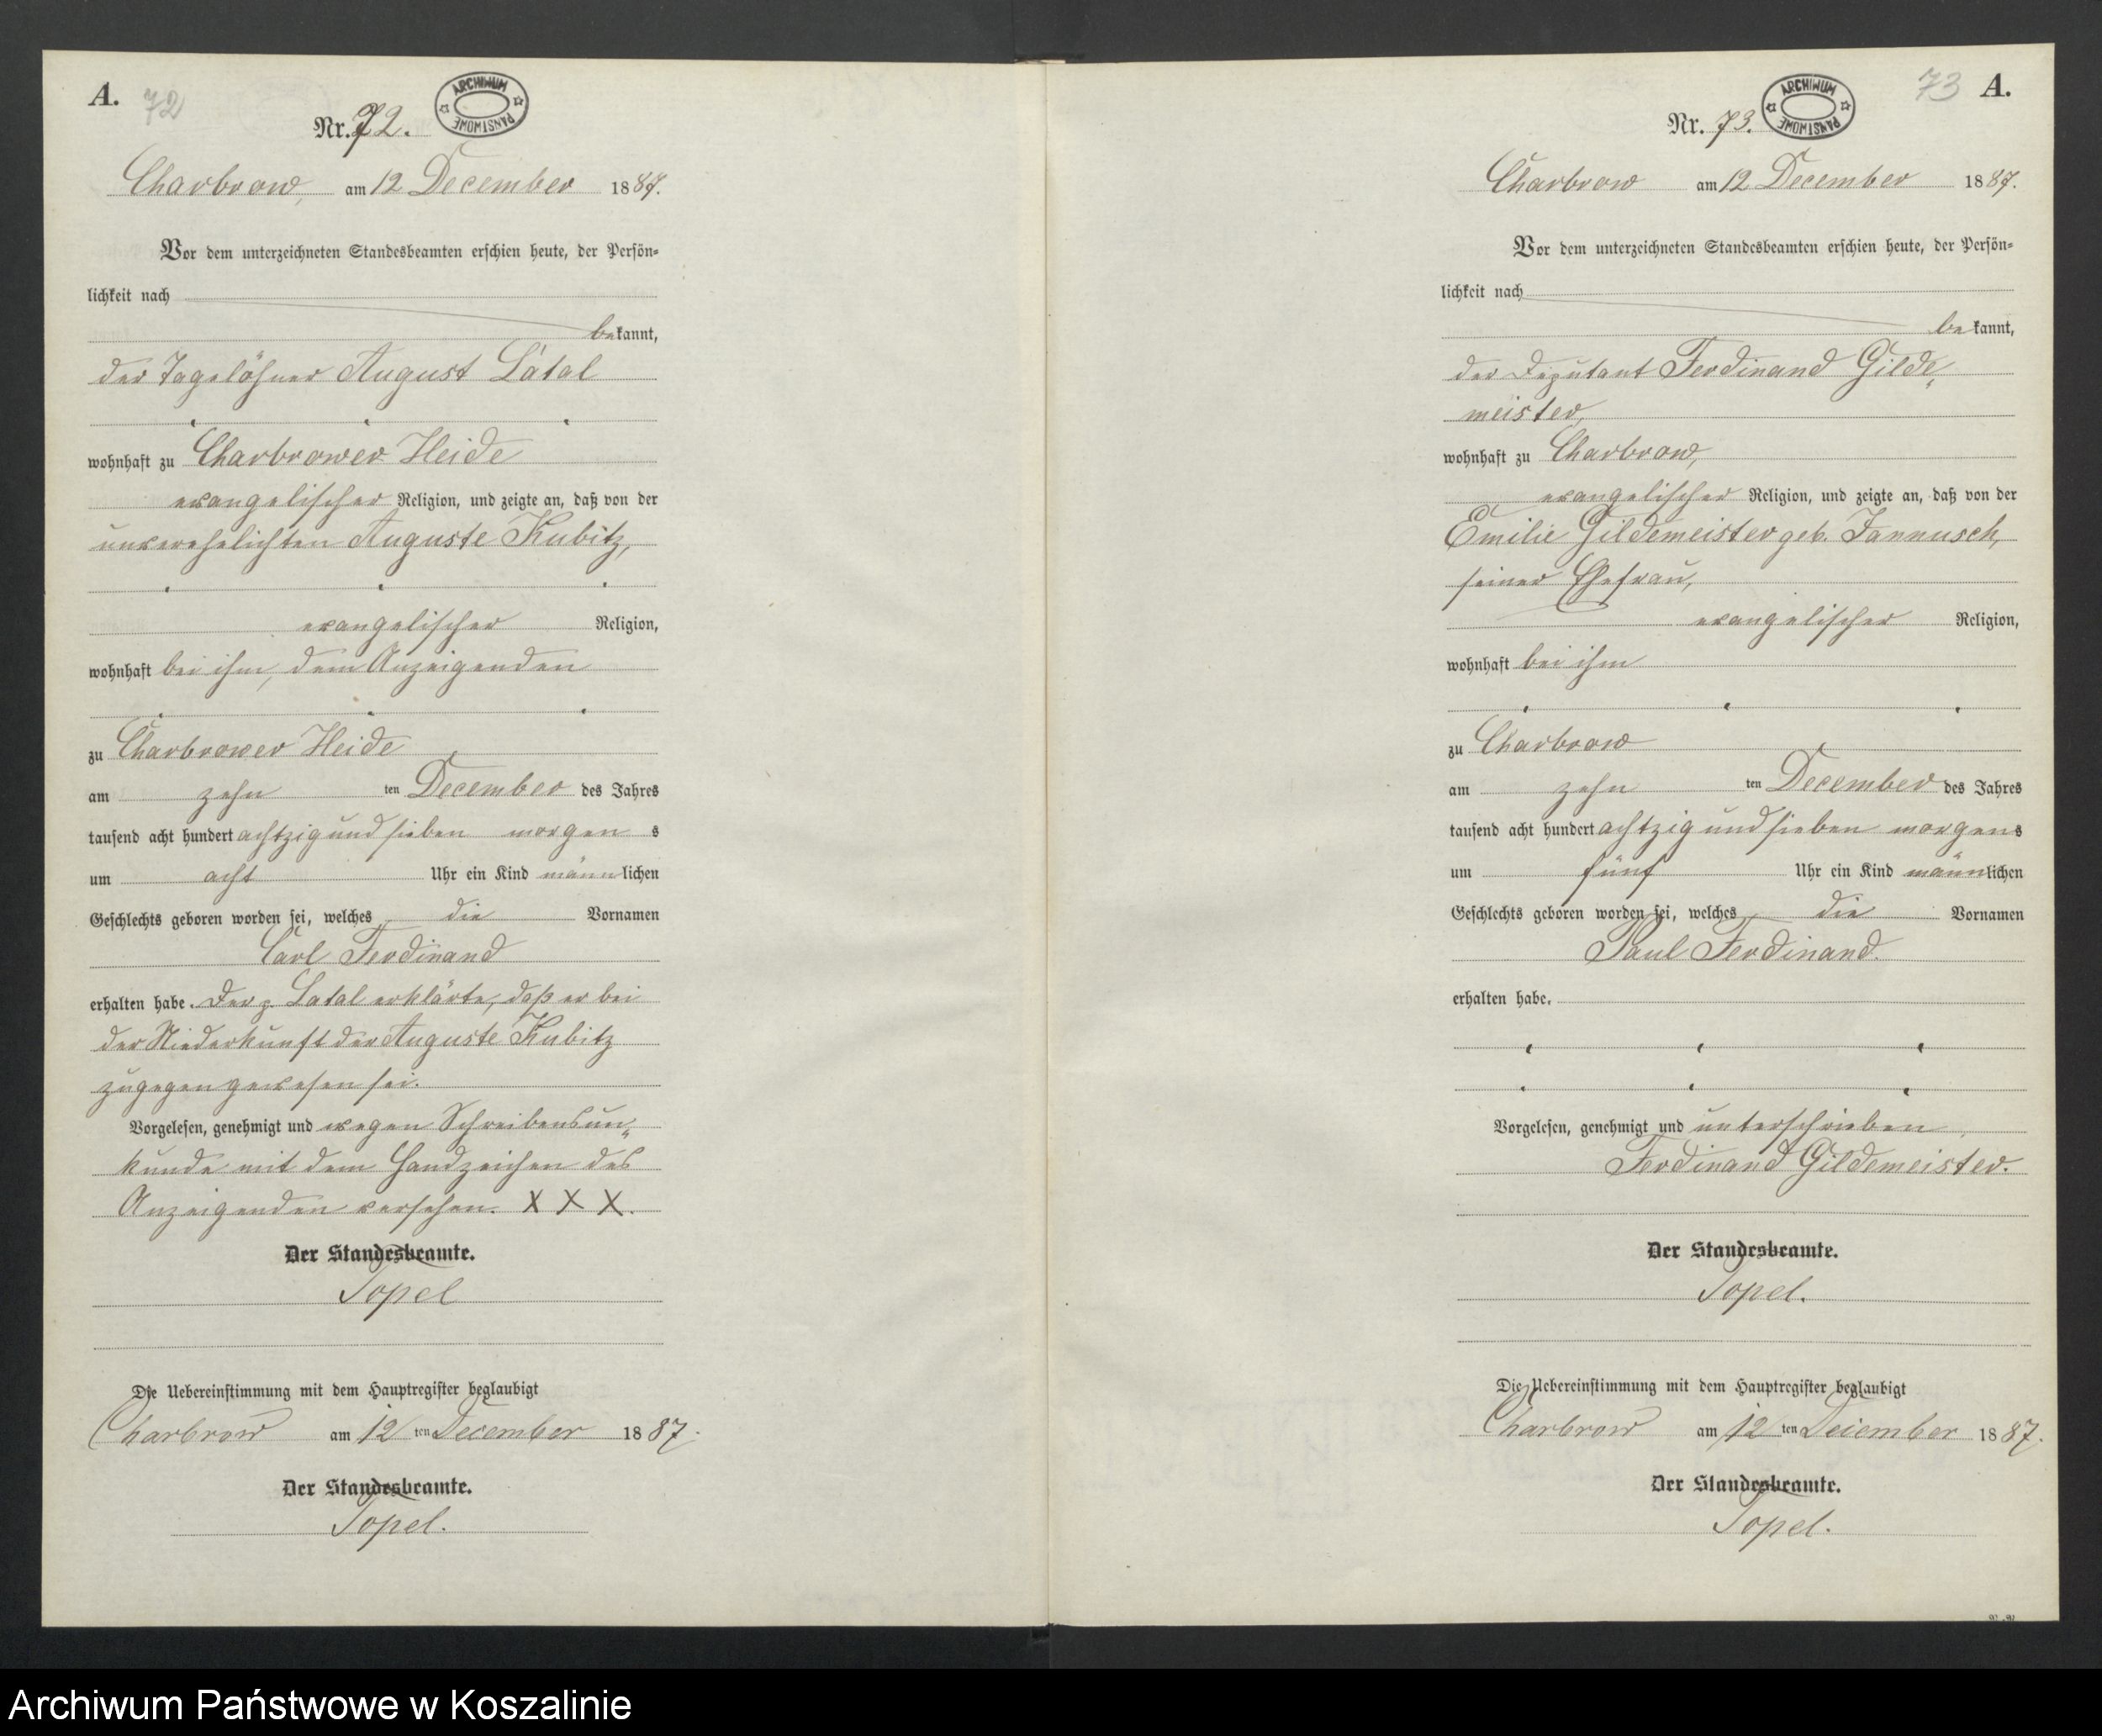 A. 72
ARCHIWUM PAŃSTWOWE
Nr. 72.
Charbrow, am 12 December 1887.
Vor dem unterzeichneten Standesbeamten erschien heute, der Persön=
lichkeit nach
bekannt,
der Tagelöhner August Latal
wohnhaft zu Charbrower Heide
evangelischer Religion, und zeigte an, daß von der
unverehelichten Auguste Kubitz,
evangelischer Religion,
wohnhaft bei ihm, dem Anzeigenden
zu Charbrower Heide
am zehn ten December des Jahres
tausend acht hundert achtzig und sieben morgens
um acht Uhr ein Kind männlichen
Geschlechts geboren worden sei, welches die Vornamen
Carl Ferdinand
erhalten habe. Der p. Latal erklärte, daß er bei
der Niederkunft der Auguste Kubitz
zugegen gewesen sei.
Vorgelesen, genehmigt und wegen Schreibensun„
kunde mit dem Handzeichen des
Anzeigenden versehen. X X X.
Der Standesbeamte.
Topel
Die Uebereinstimmung mit dem Hauptregister beglaubigt
Charbrow am 12 ten December 1887.
Der Standesbeamte.
Topel.
73 A.
ARCHIWUM PAŃSTWOWE
Nr. 73.
Charbrow am 12 December 1887.
Vor dem unterzeichneten Standesbeamten erschien heute, der Persön=
lichkeit nach
bekannt,
der Deputant Ferdinand Gilde„
meister,
wohnhaft zu Charbrow,
evangelischer Religion, und zeigte an, daß von der
Emilie Gildemeister geb. Jannusch,
seiner Ehefrau,
evangelischer Religion,
wohnhaft bei ihm
zu Charbrow
am zehn ten December des Jahres
tausend acht hundert achtzig und sieben morgens
um fünf Uhr ein Kind männlichen
Geschlechts geboren worden sei, welches die Vornamen
Paul Ferdinand.
erhalten habe.
Vorgelesen, genehmigt und unterschrieben
Ferdinand Gildemeister.
Der Standesbeamte.
Topel.
Die Uebereinstimmung mit dem Hauptregister beglaubigt
Charbrow am 12 ten December 1887.
Der Standesbeamte.
Topel.
Archiwum Państwowe w Koszalinie